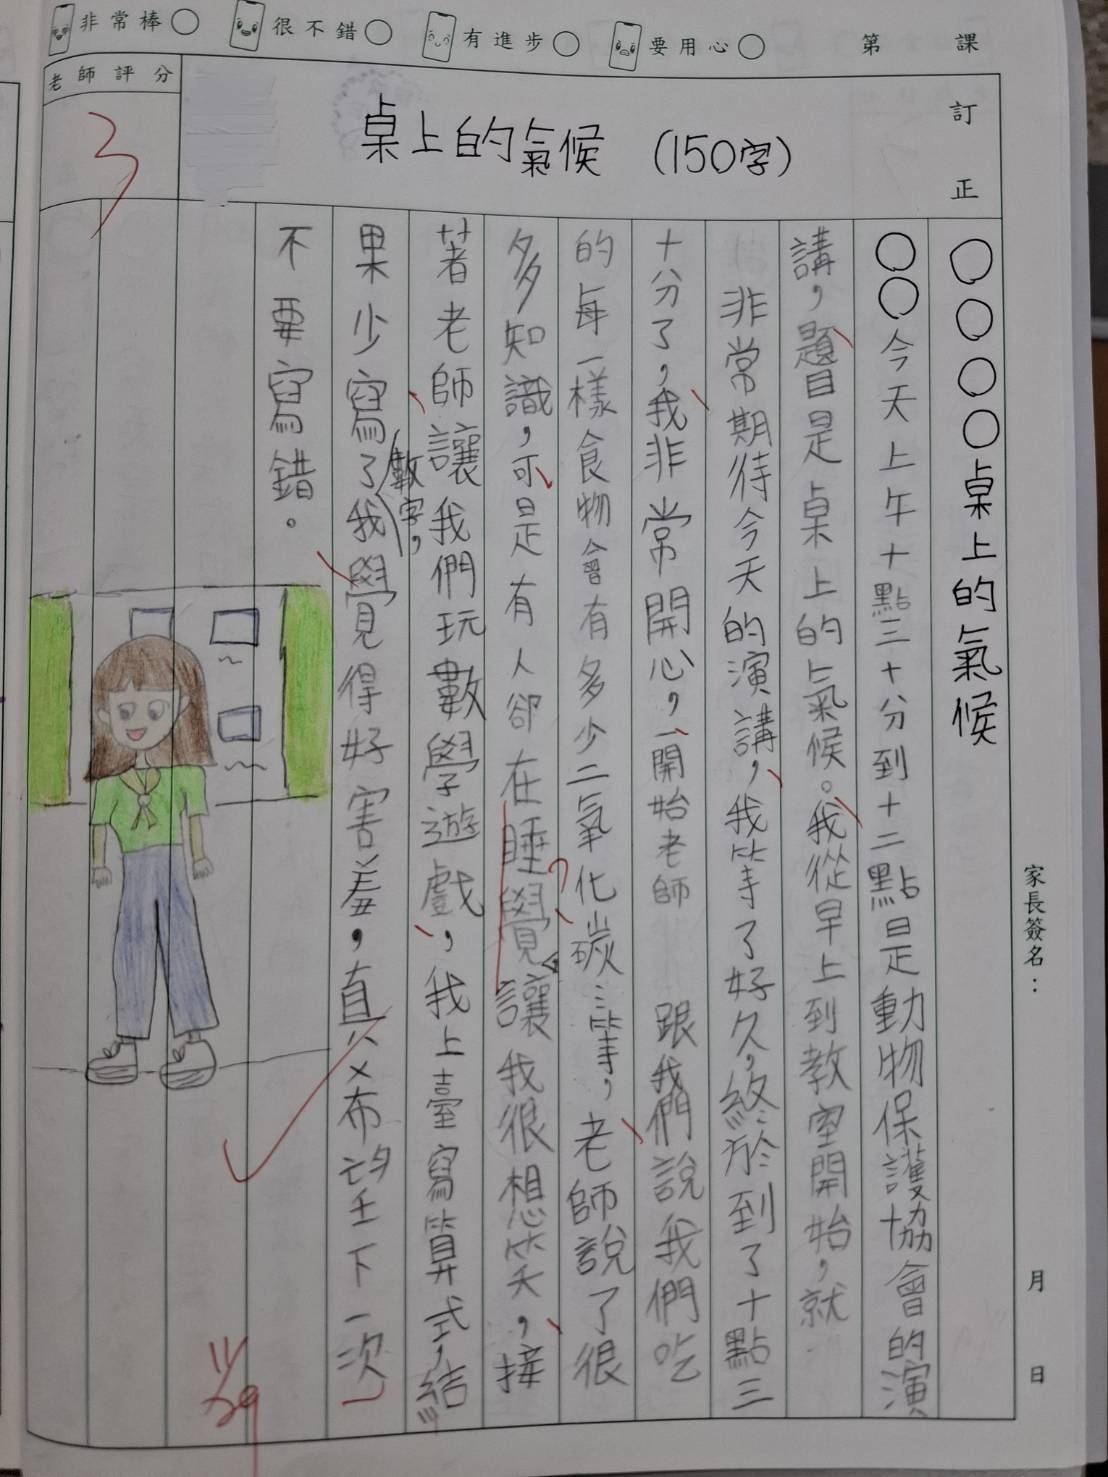 非常棒○ 很不錯○ 有進步○ 要用心○ 第 課
老師評分
3
桌上的氣候 (150字)
訂正
○○○○桌上的氣候
○○今天上午十點三十分到十二點是動物保護協會的演
講，題目是桌上的氣候。我從早上到教室開始，就
非常期待今天的演講，我等了好久，終於到了十點三
十分了，我非常開心，一開始老師 跟我們說我們吃
的每一樣食物會有多少二氧化碳……等，老師說了很
多知識，可是有人卻在睡覺讓我很想笑，接
著老師讓我們玩數學遊戲，我上臺寫算式，結
果少寫了數字，我覺得好害羞，真希望下一次
不要寫錯。
11/29
家長簽名：
月 日